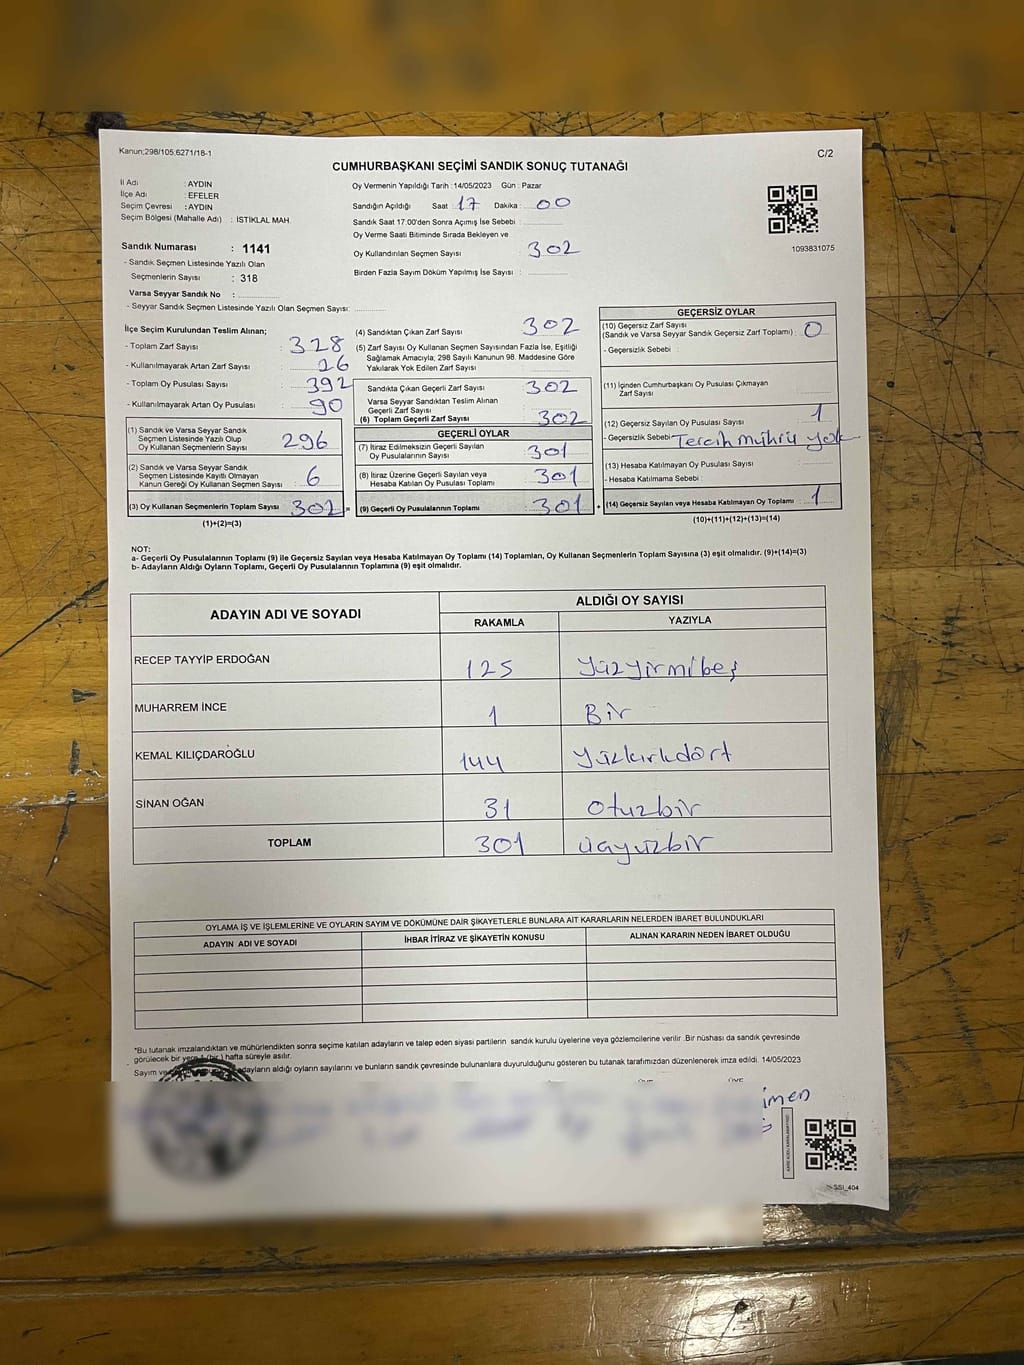 Kanun;298/105,6271/18-1
C/2
CUMHURBAŞKANI SEÇİMİ SANDIK SONUÇ TUTANAĞI
İl Adı : AYDIN
İlçe Adı : EFELER
Seçim Çevresi : AYDIN
Seçim Bölgesi (Mahalle Adı) : İSTİKLAL MAH.
Oy Vermenin Yapıldığı Tarih : 14/05/2023 Gün : Pazar
Sandığın Açıldığı Saat : 17 Dakika : 00
Sandık Saat 17:00'den Sonra Açımış İse Sebebi :
Oy Verme Saati Bitiminde Sırada Bekleyen ve
Oy Kullandırılan Seçmen Sayısı : 302
Birden Fazla Sayım Döküm Yapılmış İse Sayısı :
1093831075
Sandık Numarası : 1141
- Sandık Seçmen Listesinde Yazılı Olan
Seçmenlerin Sayısı : 318
Varsa Seyyar Sandık No :
- Seyyar Sandık Seçmen Listesinde Yazılı Olan Seçmen Sayısı:
İlçe Seçim Kurulundan Teslim Alınan;
- Toplam Zarf Sayısı : 328
- Kullanılmayarak Artan Zarf Sayısı : 26
- Toplam Oy Pusulası Sayısı : 392
- Kullanılmayarak Artan Oy Pusulası : 90
(1) Sandık ve Varsa Seyyar Sandık
Seçmen Listesinde Yazılı Olup
Oy Kullanan Seçmenlerin Sayısı : 296
(2) Sandık ve Varsa Seyyar Sandık
Seçmen Listesinde Kayıtlı Olmayan
Kanun Gereği Oy Kullanan Seçmen Sayısı : 6
(3) Oy Kullanan Seçmenlerin Toplam Sayısı : 302 =
(1)+(2)=(3)
(4) Sandıktan Çıkan Zarf Sayısı : 302
(5) Zarf Sayısı Oy Kullanan Seçmen Sayısından Fazla İse, Eşitliği
Sağlamak Amacıyla; 298 Sayılı Kanunun 98. Maddesine Göre
Yakılarak Yok Edilen Zarf Sayısı :
Sandıkta Çıkan Geçerli Zarf Sayısı : 302
Varsa Seyyar Sandıktan Teslim Alınan
Geçerli Zarf Sayısı :
(6) Toplam Geçerli Zarf Sayısı : 302
GEÇERLİ OYLAR
(7) İtiraz Edilmeksizin Geçerli Sayılan
Oy Pusulalarının Sayısı : 301
(8) İtiraz Üzerine Geçerli Sayılan veya
Hesaba Katılan Oy Pusulası Toplamı : 301
(9) Geçerli Oy Pusulalarının Toplamı : 301 +
GEÇERSİZ OYLAR
(10) Geçersiz Zarf Sayısı
(Sandık ve Varsa Seyyar Sandık Geçersiz Zarf Toplamı) : 0
- Geçersizlik Sebebi :
(11) İçinden Cumhurbaşkanı Oy Pusulası Çıkmayan
Zarf Sayısı :
(12) Geçersiz Sayılan Oy Pusulası Sayısı : 1
- Geçersizlik Sebebi : Tercih mührü yok
(13) Hesaba Katılmayan Oy Pusulası Sayısı :
- Hesaba Katılmama Sebebi :
(14) Geçersiz Sayılan veya Hesaba Katılmayan Oy Toplamı : 1
(10)+(11)+(12)+(13)=(14)
NOT:
a- Geçerli Oy Pusulalarının Toplamı (9) ile Geçersiz Sayılan veya Hesaba Katılmayan Oy Toplamı (14) Toplamları, Oy Kullanan Seçmenlerin Toplam Sayısına (3) eşit olmalıdır. (9)+(14)=(3)
b- Adayların Aldığı Oyların Toplamı, Geçerli Oy Pusulalarının Toplamına (9) eşit olmalıdır.
ADAYIN ADI VE SOYADI
ALDIĞI OY SAYISI
RAKAMLA YAZIYLA
RECEP TAYYİP ERDOĞAN 125 yüzyirmibeş
MUHARREM İNCE 1 Bir
KEMAL KILIÇDAROĞLU 144 yüzkırkdört
SİNAN OĞAN 31 otuzbir
TOPLAM 301 üçyüzbir
OYLAMA İŞ VE İŞLEMLERİNE VE OYLARIN SAYIM VE DÖKÜMÜNE DAİR ŞİKAYETLERLE BUNLARA AİT KARARLARIN NELERDEN İBARET BULUNDUKLARI
ADAYIN ADI VE SOYADI İHBAR İTİRAZ VE ŞİKAYETİN KONUSU ALINAN KARARIN NEDEN İBARET OLDUĞU
*Bu tutanak imzalandıktan ve mühürlendikten sonra seçime katılan adayların ve talep eden siyasi partilerin sandık kurulu üyelerine veya gözlemcilerine verilir .Bir nüshası da sandık çevresinde
görülecek bir yere 1 (bir ) hafta süreyle asılır.
Sayım ve adayların aldığı oyların sayılarını ve bunların sandık çevresinde bulunanlara duyurulduğunu gösteren bu tutanak tarafımızdan düzenlenerek imza edildi. 14/05/2023
SSI_404